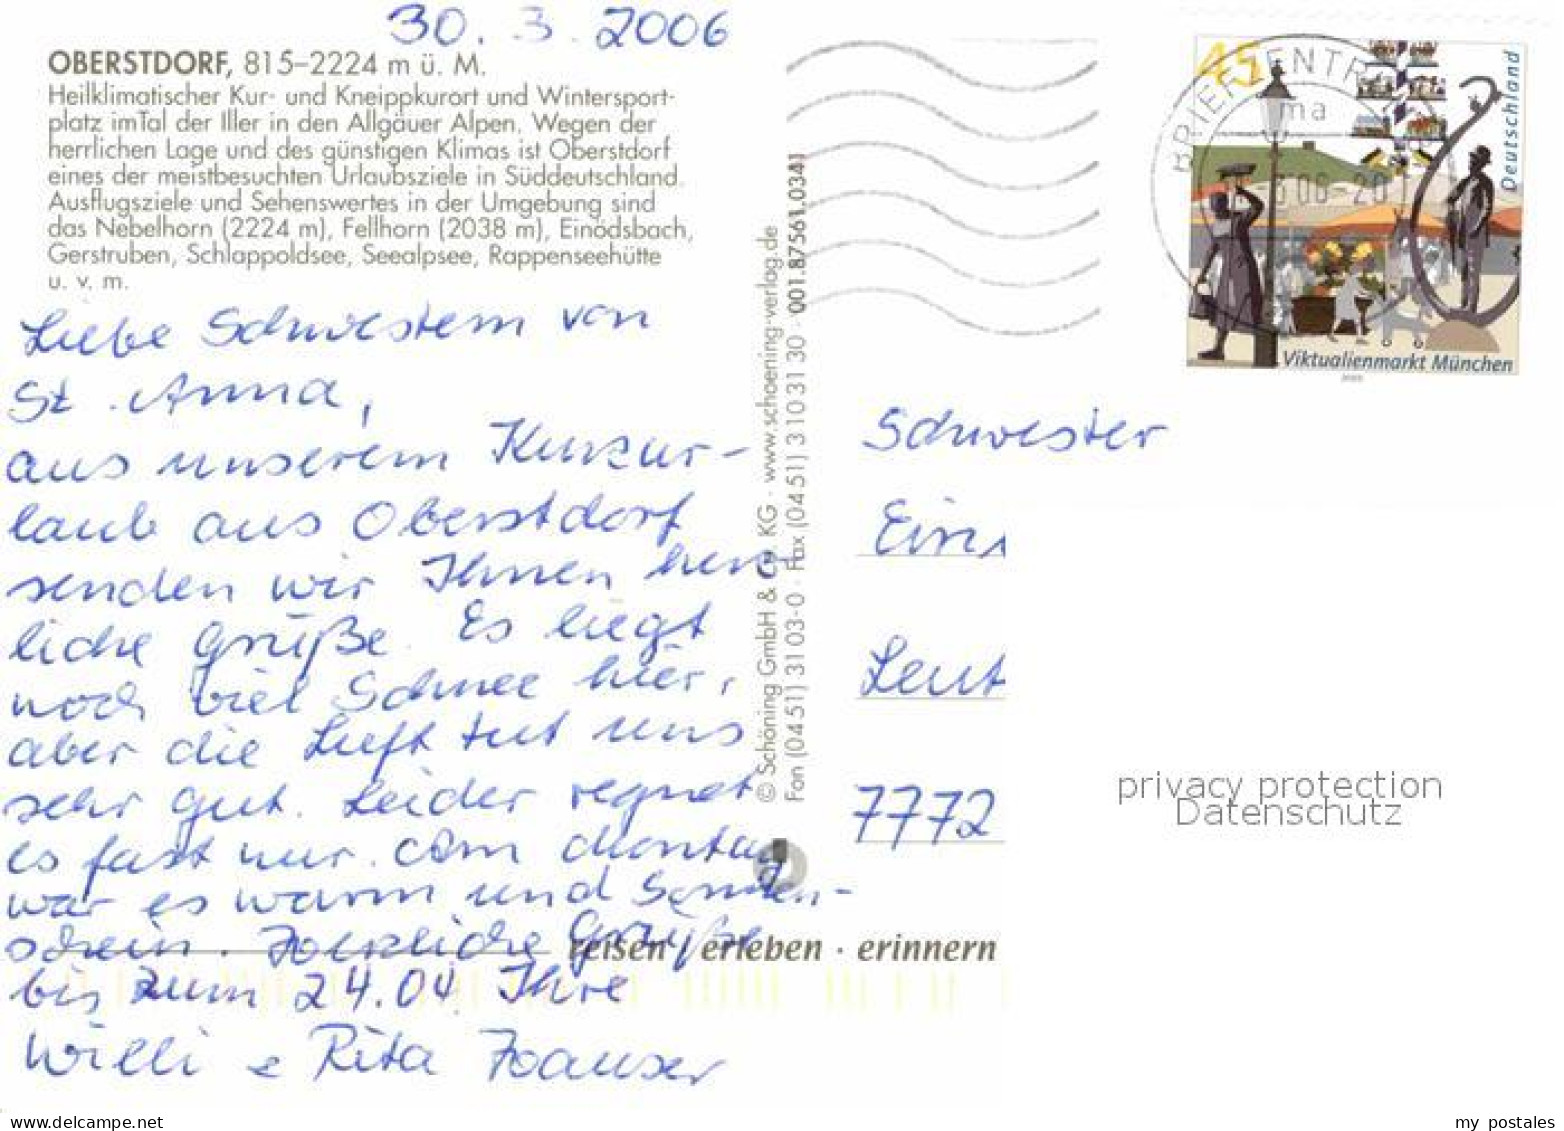 30. 3. 2006
OBERSTDORF, 815–2224 m ü. M.
Heilklimatischer Kur- und Kneippkurort und Wintersport-
platz im Tal der Iller in den Allgäuer Alpen. Wegen der
herrlichen Lage und des günstigen Klimas ist Oberstdorf
eines der meistbesuchten Urlaubsziele in Süddeutschland.
Ausflugsziele und Sehenswertes in der Umgebung sind
das Nebelhorn (2224 m), Fellhorn (2038 m), Einödsbach,
Gerstruben, Schlappoldsee, Seealpsee, Rappenseehütte
u. v. m.
Liebe Schwestern von
St. Anna,
aus unserem Kurzur-
laub aus Oberstdorf
senden wir Ihnen herz
liche Grüße. Es liegt
noch viel Schnee hier,
aber die Luft tut uns
sehr gut. Leider regnet
es fast nur. Am Montag
war es warm und Sonnen-
schein. Herzliche Grüße
bis zum 24.04 Ihre
Willi & Rita
© Schöning GmbH & Co. KG · www.schoening-verlag.de
Fon (0451) 31 03-0 · Fax (0451) 31 03 31 30 · 001.87561.0341
reisen · erleben · erinnern
BRIEFZENTR
ma
45
Deutschland
Viktualienmarkt München
2003
Schwester
Leut
7772
privacy protection
Datenschutz
www.delcampe.net
my postales